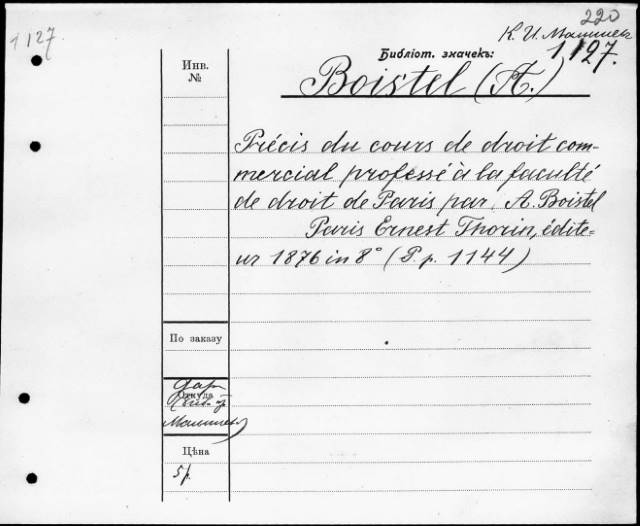 220
1127
К. И. Малышев
Библіот. значекъ:
1127.
Инв.
№
Boistel (A.)
Précis du cours de droit com-
mercial professé à la faculté
de droit de Paris par A. Boistel
Paris Ernest Thorin, édite-
ur 1876 in 8° (P. p. 1144)
По заказу
Дар
Откуда
Цѣна
5 р.